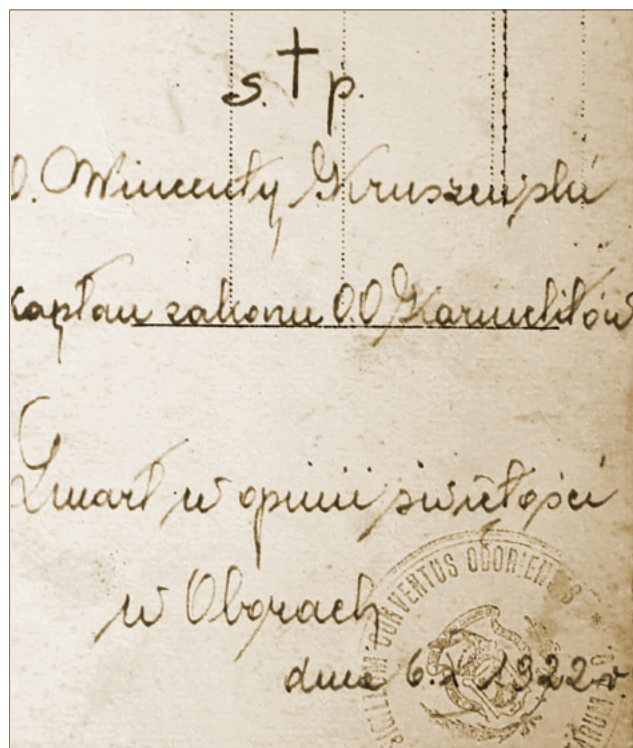 s. † p.
O. Wincenty Kruszewski
kapłan zakonu O.O. Karmelitów
Zmarł w opinii świętości
w Oborach
dnia 6.X 1922 r
SIGILLUM CONVENTUS OBORIENSIS *